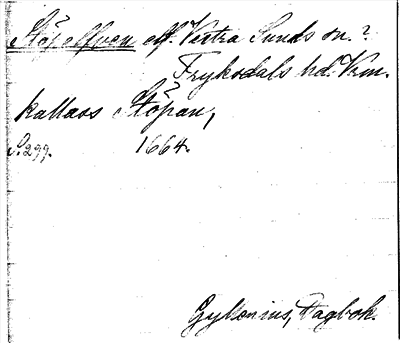 Stöpelfven elf. Vestra Sunds sn.?
Fryksdals hd. Vrm.
kallas Stöpan,
S. 299. 1664.
Gyllenius, Dagbok.